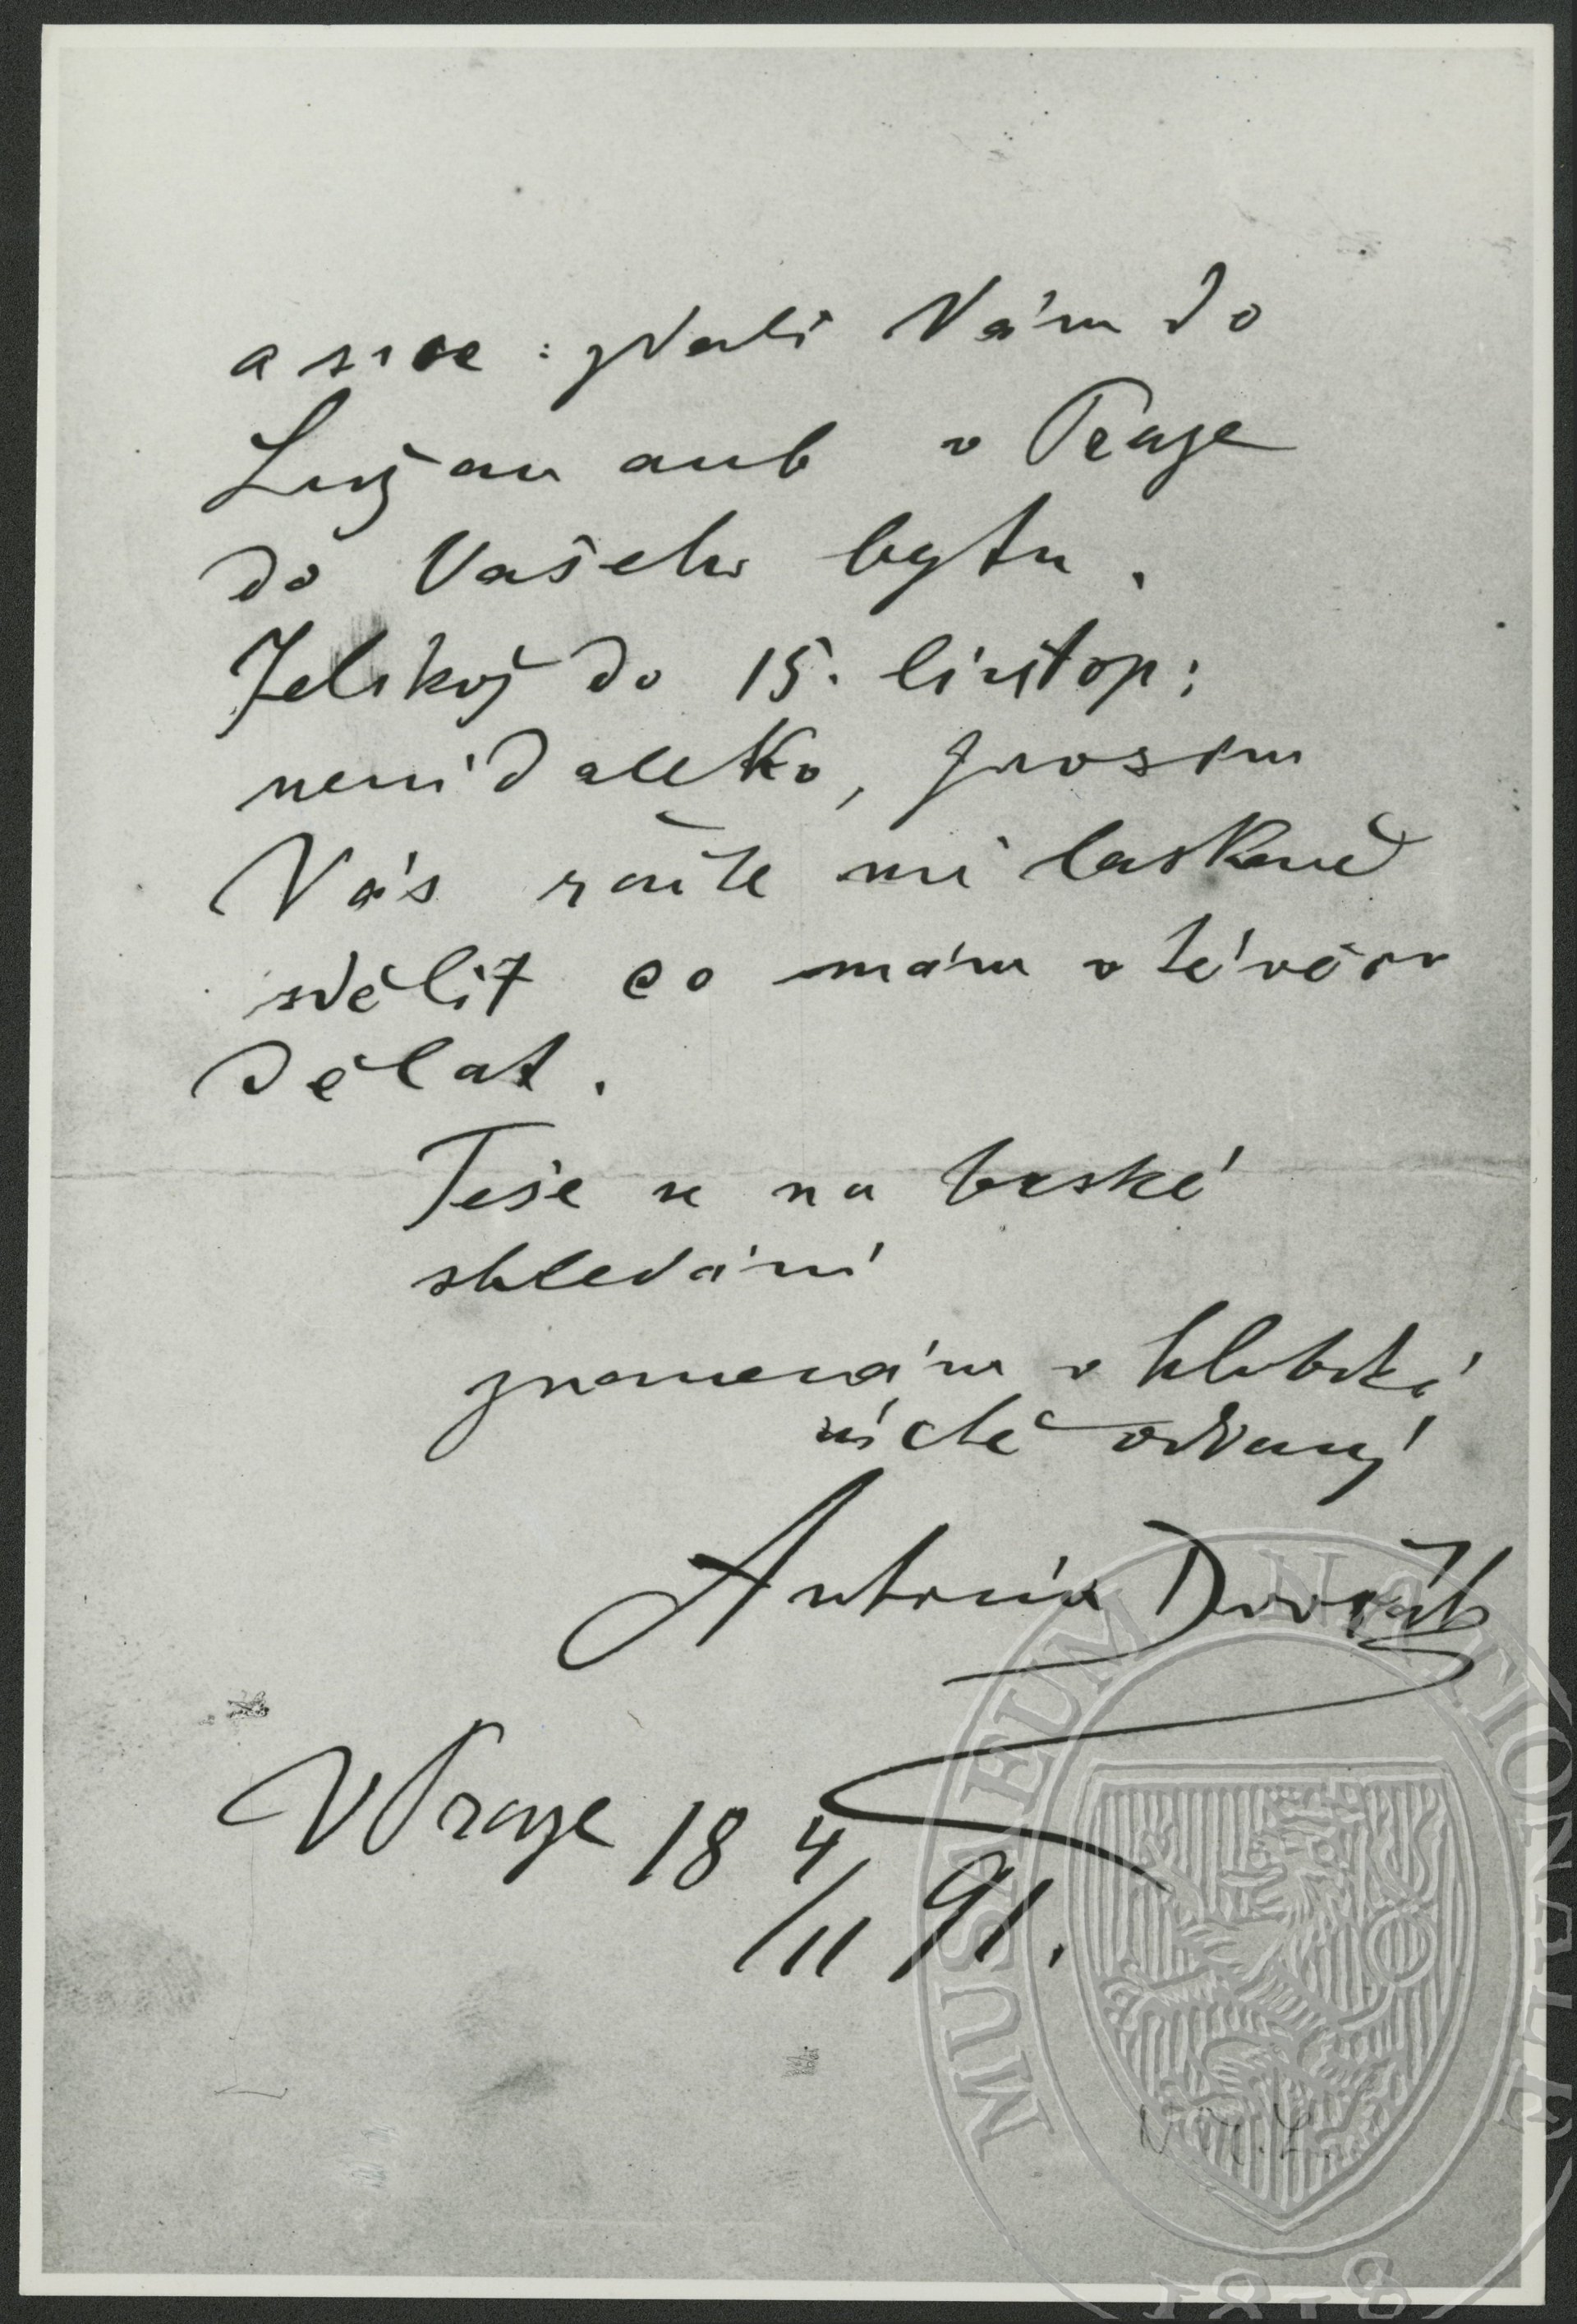 a sice: zdali Vám do
Lužan aneb v Praze
do Vašeho bytu.
Jelikož do 15. listop:
není daleko, prosím
Vás račte mi laskavě
sdělit co mám v té věci
dělat.
Těše se na brské
shledání
znamenám v hluboké
úctě oddaný
Antonín Dvořák
V Praze 18 4/11 91.
MUSAEUM NATIONALE
1818